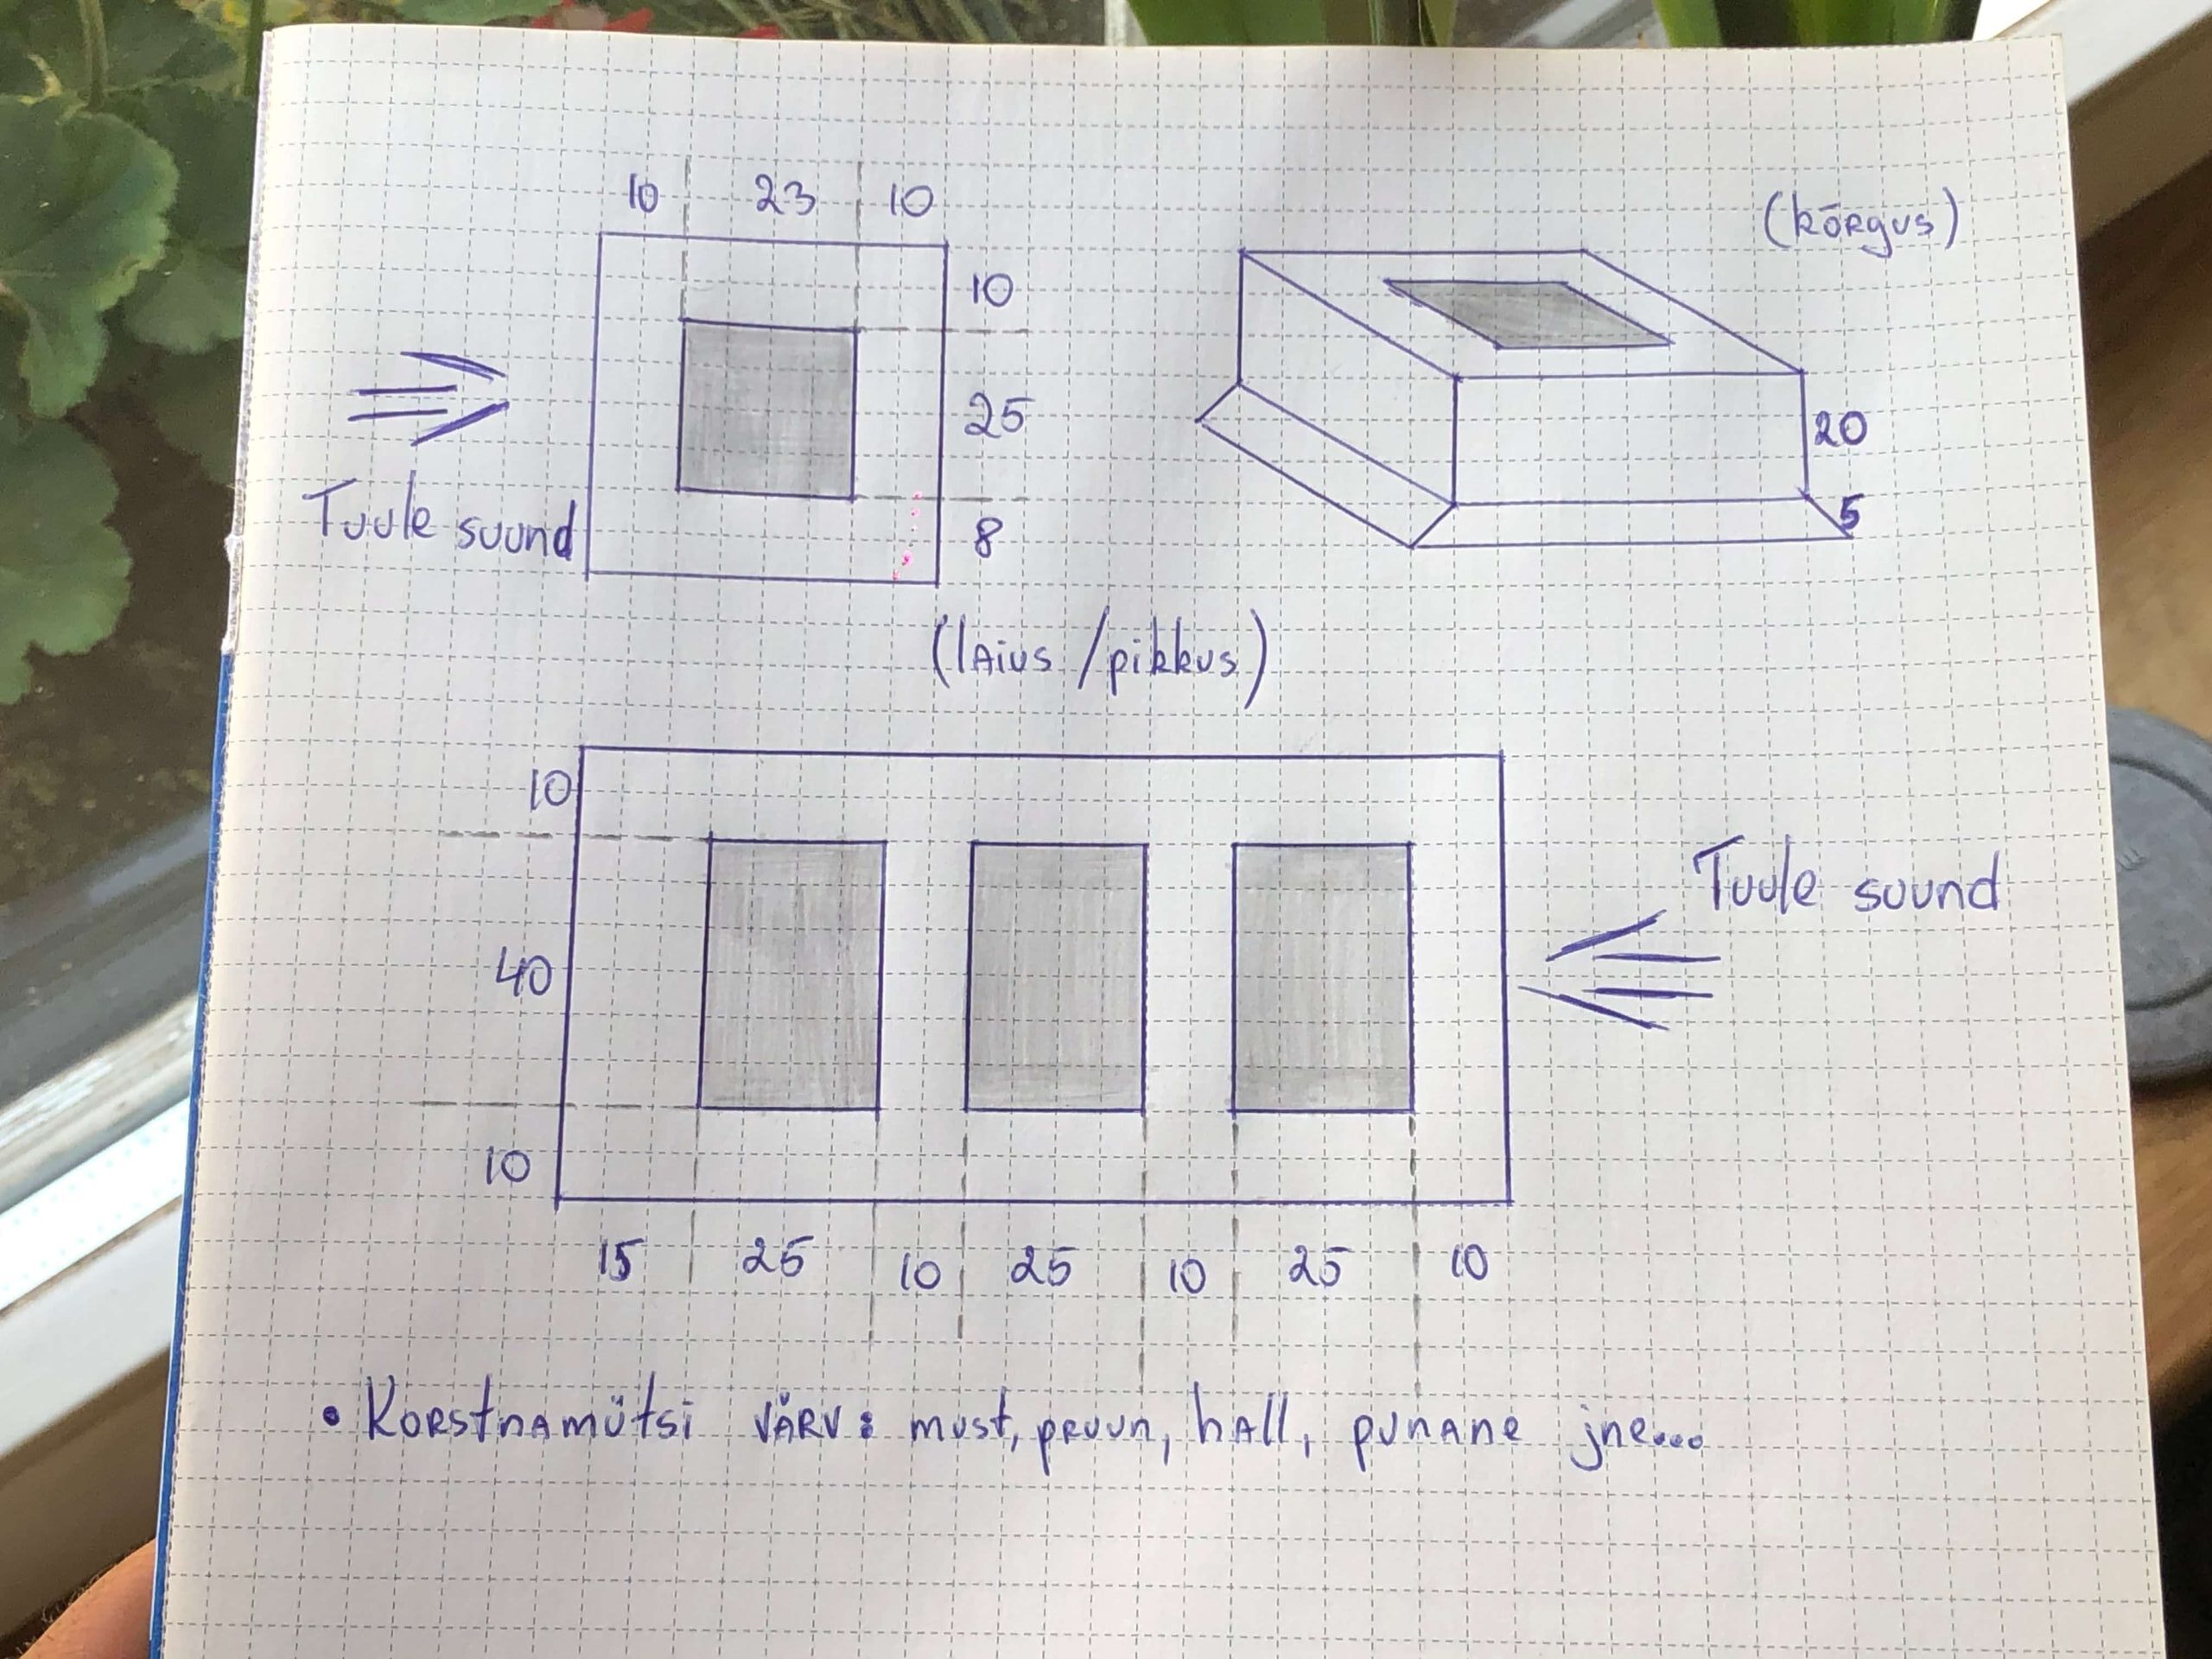 10 23 10
(kõrgus)
10
25
8
Tuule suund
20
5
(laius/pikkus)
10
40
10
Tuule suund
15 25 10 25 10 25 10
• Korstnamütsi värv: must, pruun, hall, punane jne...